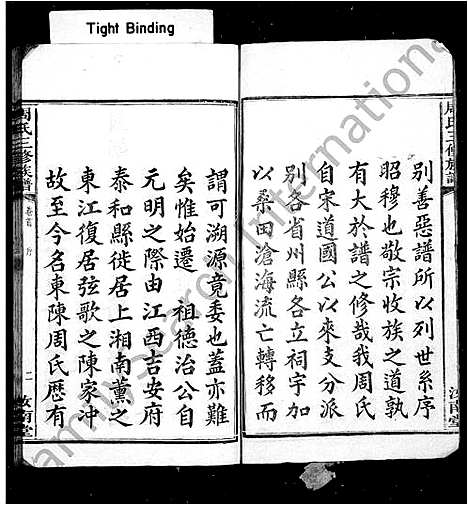 Tight Binding
周氏三修族譜
汝南堂
別善惡譜所以列世系序
昭穆也敬宗收族之道孰
有大於譜之修哉我周氏
自宋道國公以來支分派
別各省州縣各立祠宇加
以桑田滄海流亡轉移而
謂可溯源竟委也蓋亦難
矣惟始遷 祖德治公自
元明之際由江西吉安府
泰和縣徙居上湘南薰之
東江復居弦歌之陳家沖
故至今名東陳周氏歷有
周氏三修族譜
卷首
二
汝南堂